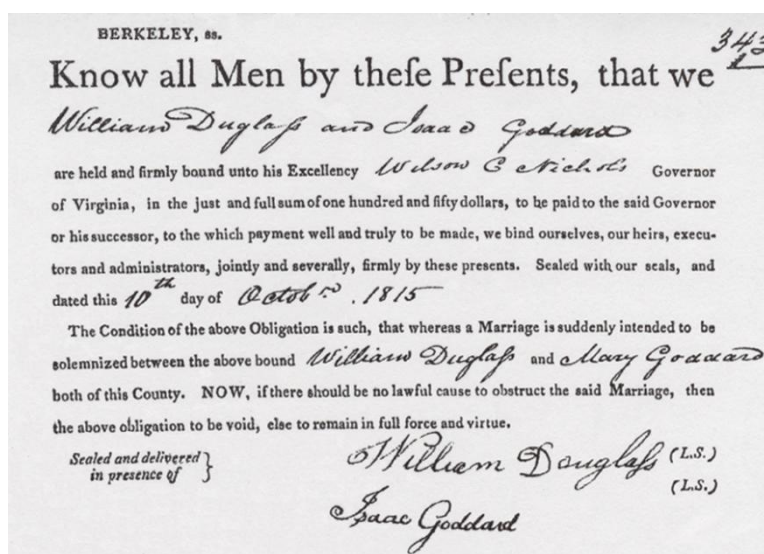 BERKELEY, ss.
343
1
Know all Men by theſe Preſents, that we
William Duglaſs and Isaac Goddard
are held and firmly bound unto his Excellency Wilson C Nichols Governor
of Virginia, in the just and full sum of one hundred and fifty dollars, to be paid to the said Governor
or his successor, to the which payment well and truly to be made, we bind ourselves, our heirs, execu-
tors and administrators, jointly and severally, firmly by these presents. Sealed with our seals, and
dated this 10th day of Octobr. 1815
The Condition of the above Obligation is such, that whereas a Marriage is suddenly intended to be
solemnized between the above bound William Duglaſs and Mary Goddard
both of this County. NOW, if there should be no lawful cause to obstruct the said Marriage, then
the above obligation to be void, else to remain in full force and virtue.
Sealed and delivered } William Douglaſs (L.S.)
in presence of (L.S.)
Isaac Goddard